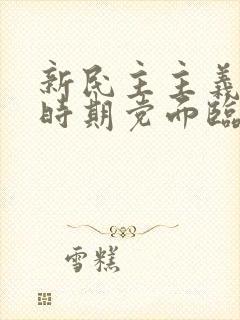 新民主主義
時期党而臨
雪糕